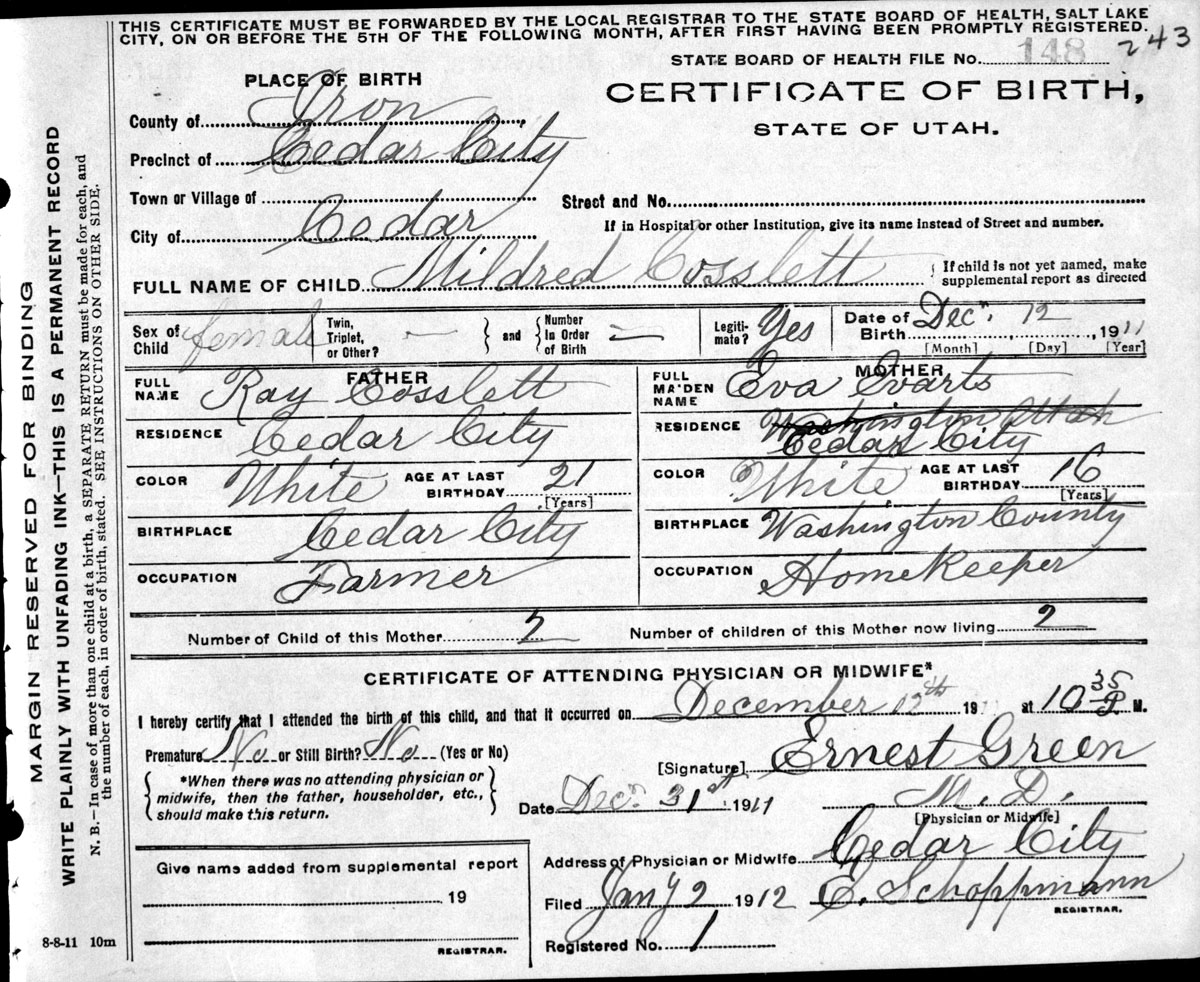 THIS CERTIFICATE MUST BE FORWARDED BY THE LOCAL REGISTRAR TO THE STATE BOARD OF HEALTH, SALT LAKE
CITY, ON OR BEFORE THE 5TH OF THE FOLLOWING MONTH, AFTER FIRST HAVING BEEN PROMPTLY REGISTERED.
STATE BOARD OF HEALTH FILE NO. 148 243
PLACE OF BIRTH
CERTIFICATE OF BIRTH,
STATE OF UTAH.
County of Iron
Precinct of Cedar City
Town or Village of
Street and No.
City of Cedar
If in Hospital or other Institution, give its name instead of Street and number.
FULL NAME OF CHILD Mildred Cosslett
If child is not yet named, make
supplemental report as directed
Sex of Child female
Twin, Triplet, or Other? — and Number In Order of Birth —
Legiti- mate? Yes
Date of Birth Decr. 12 1911
[Month] [Day] [Year]
FATHER
FULL NAME Ray Cosslett
RESIDENCE Cedar City
COLOR White AGE AT LAST BIRTHDAY 21
[Years]
BIRTHPLACE Cedar City
OCCUPATION Farmer
MOTHER
FULL MAIDEN NAME Eva Evarts
RESIDENCE Washington Utah
Cedar City
COLOR White AGE AT LAST BIRTHDAY 16
[Years]
BIRTHPLACE Washington County
OCCUPATION HomeKeeper
Number of Child of this Mother 2 Number of children of this Mother now living 2
CERTIFICATE OF ATTENDING PHYSICIAN OR MIDWIFE*
I hereby certify that I attended the birth of this child, and that it occurred on December 12th 19 at 10 35 P. M.
Premature No or Still Birth? No (Yes or No)
*When there was no attending physician or
midwife, then the father, householder, etc.,
should make this return.
[Signature] Ernest Green
Date Decr. 31st 1911 M. D.
[Physician or Midwife]
Address of Physician or Midwife Cedar City
Filed Jany 2 1912 E. Schoppmann
REGISTRAR.
Registered No. 1
Give name added from supplemental report
19
REGISTRAR.
8-8-11 10m
MARGIN RESERVED FOR BINDING
WRITE PLAINLY WITH UNFADING INK—THIS IS A PERMANENT RECORD
N. B.—In case of more than one child at a birth, a SEPARATE RETURN must be made for each, and
the number of each, in order of birth, stated. SEE INSTRUCTIONS ON OTHER SIDE.